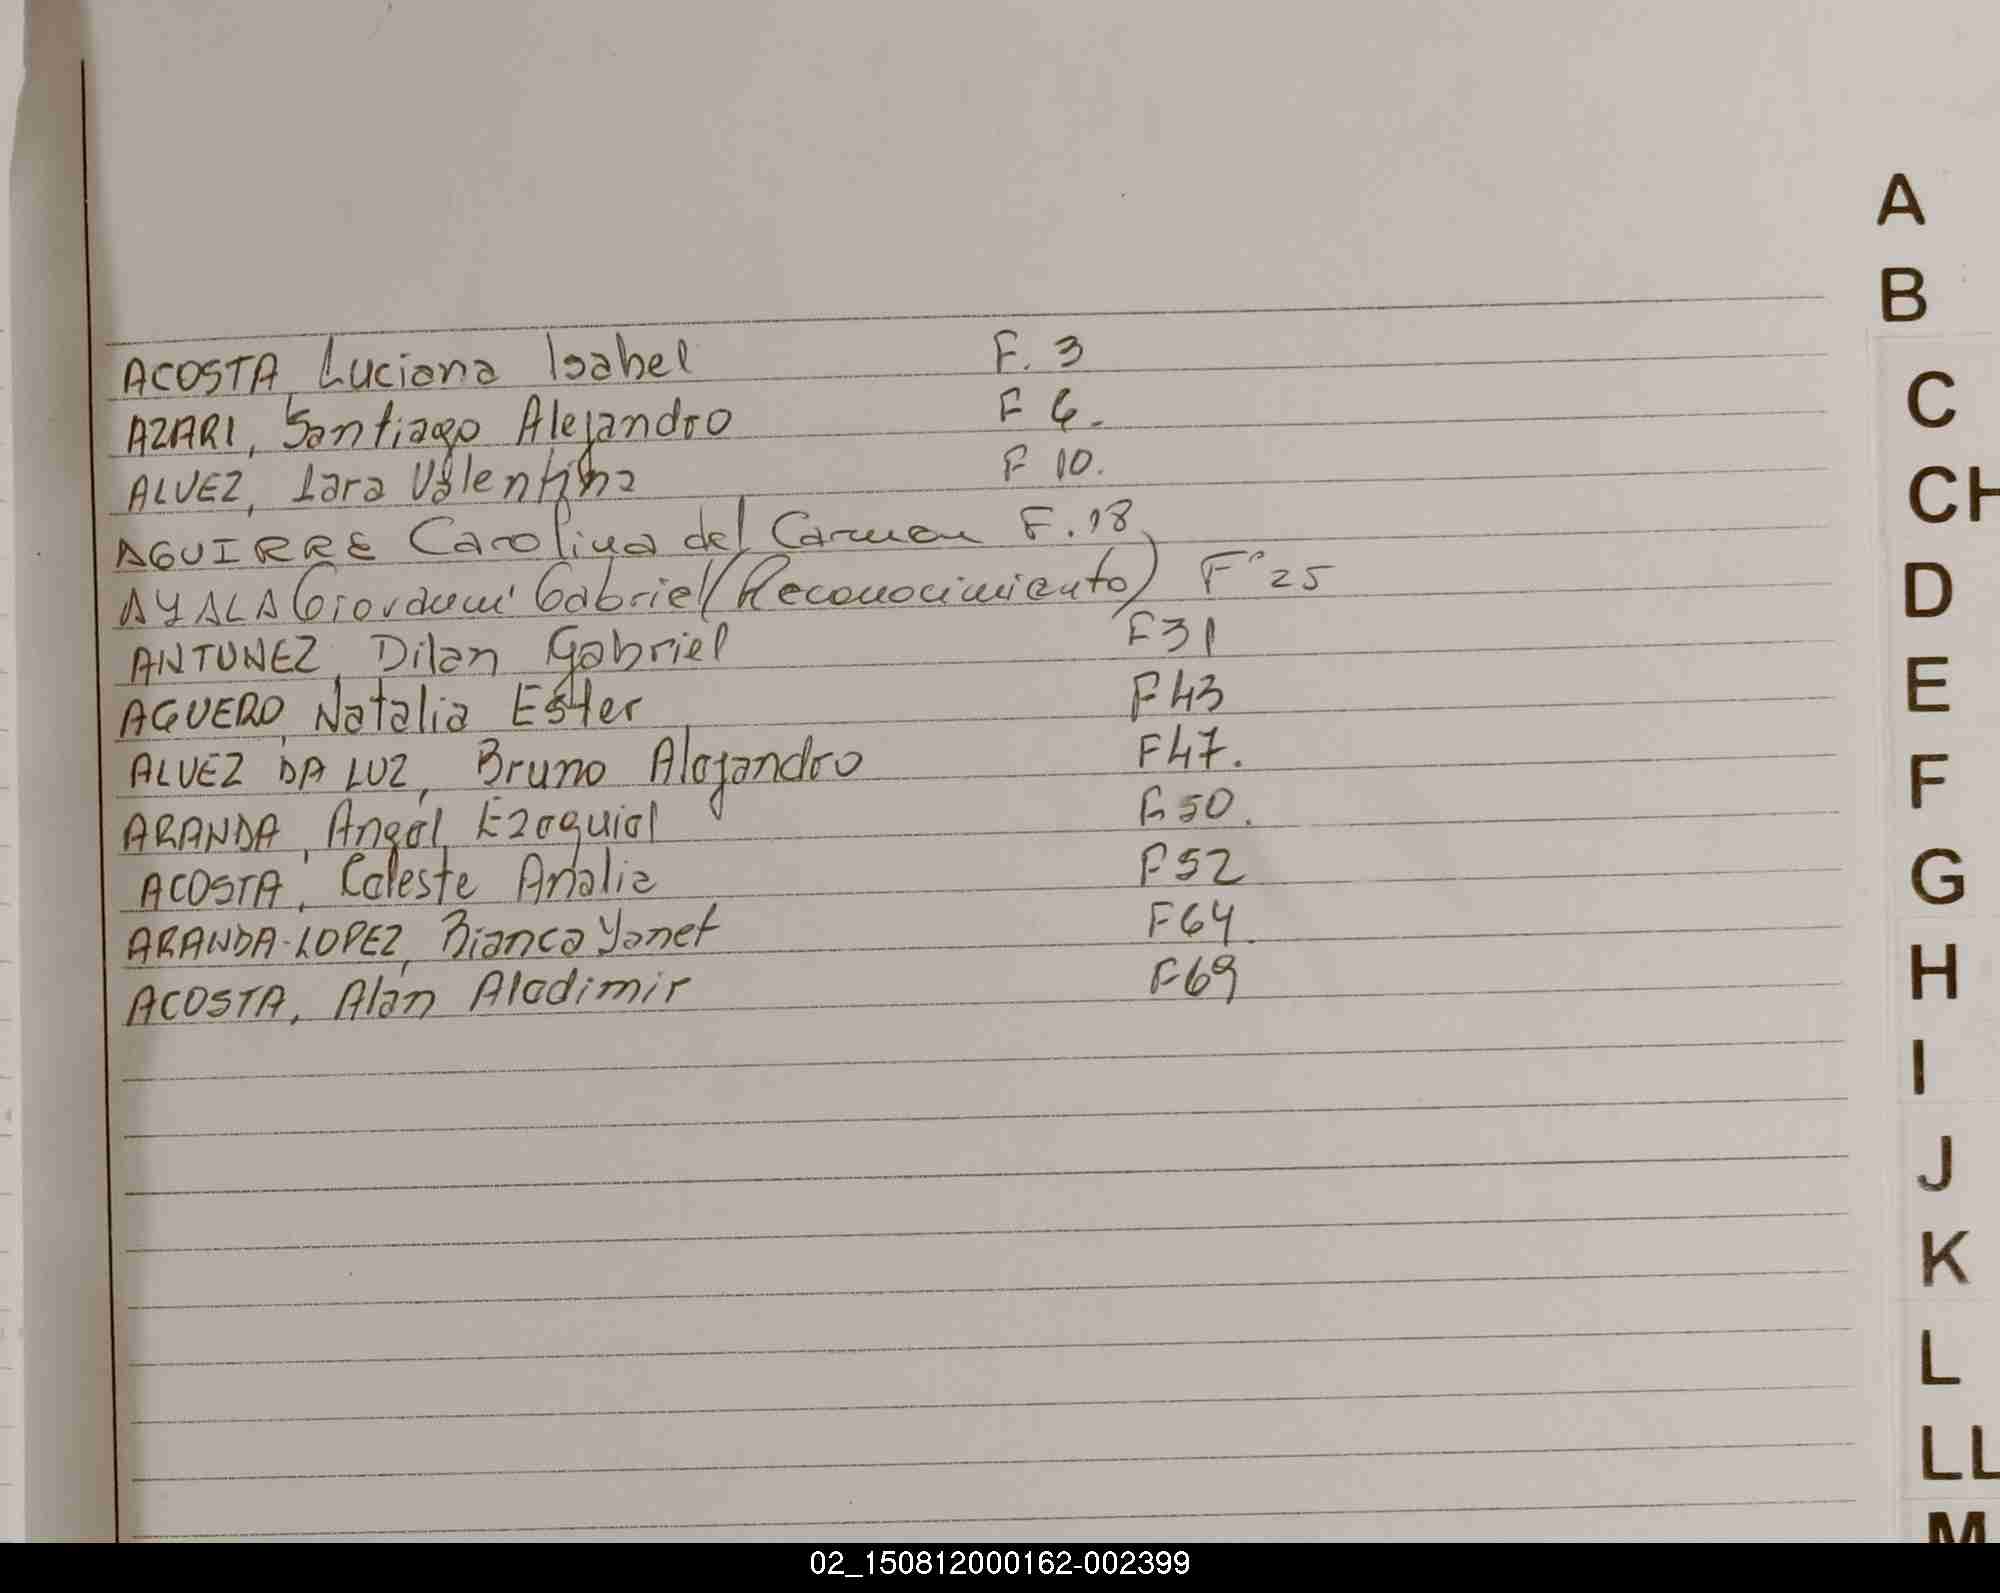 ACOSTA, Luciana Isabel F. 3
AZARI, Santiago Alejandro F 6.
ALVEZ, Iara Valentina F 10.
AGUIRRE Carolina del Carmen F. 18
AYALA Giovanni Gabriel (Reconocimiento) Fº 25
ANTUNEZ, Dilan Gabriel F31
AGUERO, Natalia Ester F43
ALVEZ DA LUZ, Bruno Alejandro F47.
ARANDA, Angel Ezequiel F50.
ACOSTA, Celeste Analia F52
ARANDA-LOPEZ, Bianca Yanet F64
ACOSTA, Alan Aladimir F69
A
B
C
CH
D
E
F
G
H
I
J
K
L
LL
M
02_150812000162-002399